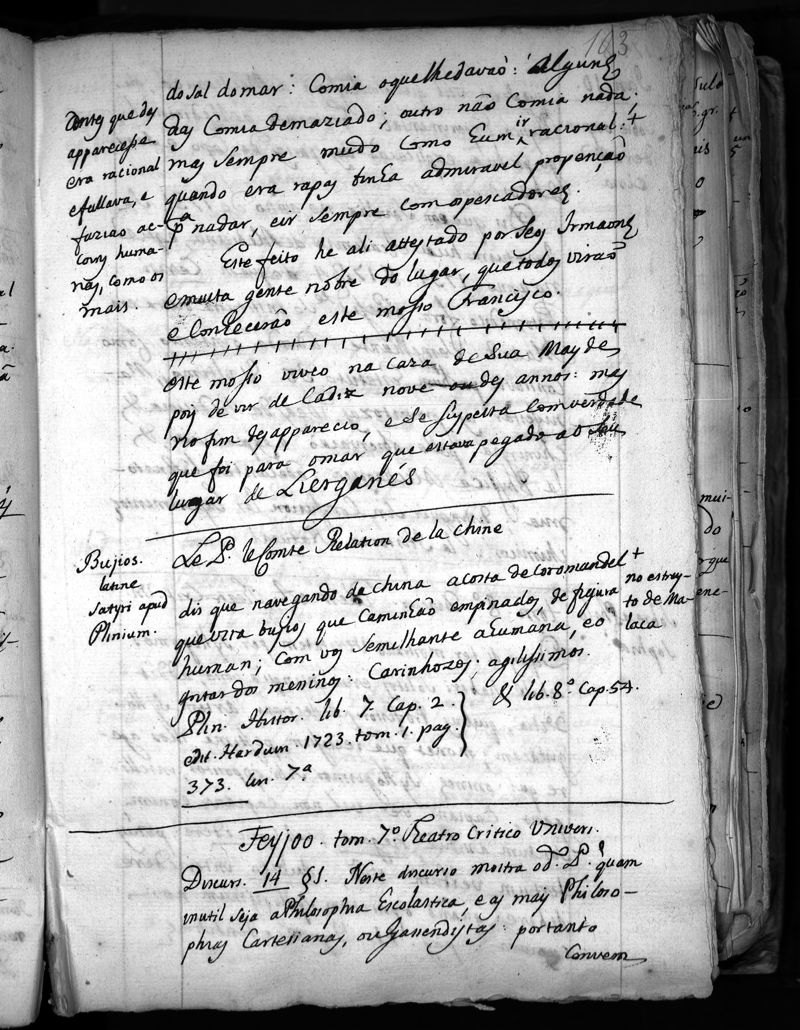 103
do sal do mar: Comia oque lhe davaõ: Alguns
das Comia demaziado; outro não Comia nada;
mas sempre mudo como hum irracional: +
quando era rapas tinha admiravel propenção
pª nadar, e ir sempre com os pescadores.
Este feito he ali attestado por seos Irmaons
e muita gente nobre do lugar, que todos viraõ
e Conhecerão este mosso Francisco.
Antes que des
apparecesse
era racional
e fallava, e
fazia o ac-
coens huma-
nas, como os
mais.
Este mosso viveo na caza de Sua May de
pois de vir de Cadiz nove ou des annos: mas
no fim desapparecio, e se suspeita com verdade
que foi para o mar que estava pegado ao seu
lugar de Lierganés
Le P. le Comte Relation de la Chine
Bujios.
latine
Satyri apud
Plinium.
dis que navegando da China a costa de Coromandel +
que vira bujios que Caminhão empinados, de figura
human; Com vos semelhante a humana, e o
gritar dos meninos: Carinhozos; agilissimos.
+ no estrey-
to de Ma-
laca
Plin. Histor. lib. 7. Cap. 2. & lib. 8.º Cap. 54.
edit. Harduin. 1723. tom. 1. pag.
373. lin. 7.ª
Feyjoo. tom. 7.º Teatro Critico Univers.
Discurs. 14 §1. Neste discurso mostra o d.º P.e quam
inutil seja a Philosophia Escolastica, e as mais Philoso-
phias Cartesianas, ou Gassendistas: portanto
Convem